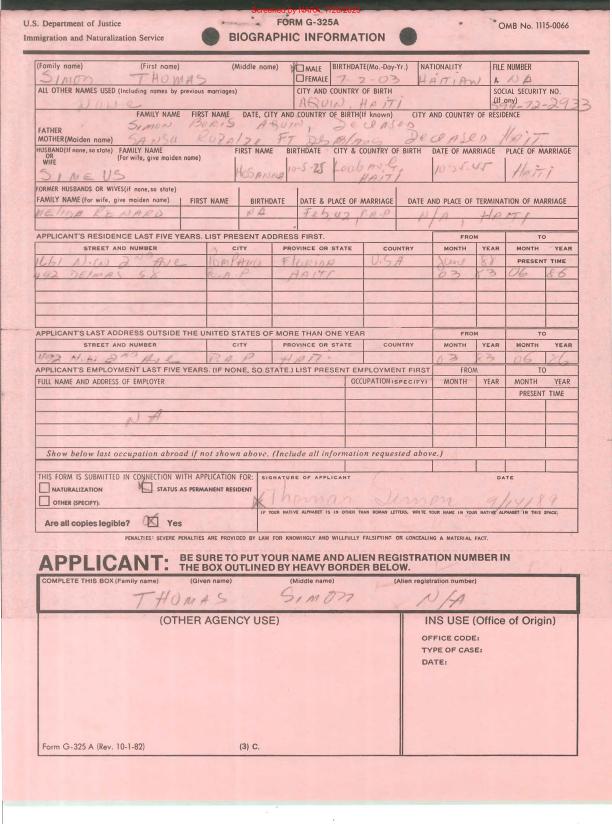 Screened by NARA, 7/26/2023
U.S. Department of Justice
Immigration and Naturalization Service
FORM G-325A
BIOGRAPHIC INFORMATION
OMB No. 1115-0066
(Family name) (First name) (Middle name) MALE FEMALE BIRTHDATE(Mo.-Day-Yr.) NATIONALITY FILE NUMBER
SIMON THOMAS 7-2-03 HAITIAN A NA
ALL OTHER NAMES USED (Including names by previous marriages) CITY AND COUNTRY OF BIRTH SOCIAL SECURITY NO. (If any)
NONE AQUIN, HAITI 72-2933
FAMILY NAME FIRST NAME DATE, CITY AND COUNTRY OF BIRTH(If known) CITY AND COUNTRY OF RESIDENCE
FATHER SIMON BORIS AQUIN, DECEASED
MOTHER(Maiden name) DECEASED
HUSBAND(If none, so state) OR WIFE FAMILY NAME (For wife, give maiden name) FIRST NAME BIRTHDATE CITY & COUNTRY OF BIRTH DATE OF MARRIAGE PLACE OF MARRIAGE
SIMEUS 10-5-25 HAITI HAITI
FORMER HUSBANDS OR WIVES(if none, so state)
FAMILY NAME (For wife, give maiden name) FIRST NAME BIRTHDATE DATE & PLACE OF MARRIAGE DATE AND PLACE OF TERMINATION OF MARRIAGE
NA Feb 42, P.A.P N/A, HAITI
APPLICANT'S RESIDENCE LAST FIVE YEARS. LIST PRESENT ADDRESS FIRST. FROM TO
STREET AND NUMBER CITY PROVINCE OR STATE COUNTRY MONTH YEAR MONTH YEAR
N.W 2nd AVE FLORIDA U.S.A June PRESENT TIME
DELMAS P.A.P HAITI 03 83 06 86
APPLICANT'S LAST ADDRESS OUTSIDE THE UNITED STATES OF MORE THAN ONE YEAR FROM TO
STREET AND NUMBER CITY PROVINCE OR STATE COUNTRY MONTH YEAR MONTH YEAR
2nd Ave P.A.P HAITI 03 83 06
APPLICANT'S EMPLOYMENT LAST FIVE YEARS. (IF NONE, SO STATE.) LIST PRESENT EMPLOYMENT FIRST FROM TO
FULL NAME AND ADDRESS OF EMPLOYER OCCUPATION (SPECIFY) MONTH YEAR MONTH YEAR
PRESENT TIME
NA
Show below last occupation abroad if not shown above. (Include all information requested above.)
THIS FORM IS SUBMITTED IN CONNECTION WITH APPLICATION FOR: SIGNATURE OF APPLICANT DATE
NATURALIZATION STATUS AS PERMANENT RESIDENT
OTHER (SPECIFY): Thomas Simon 9/14/89
Are all copies legible? Yes IF YOUR NATIVE ALPHABET IS IN OTHER THAN ROMAN LETTERS, WRITE YOUR NAME IN YOUR NATIVE ALPHABET IN THIS SPACE:
PENALTIES: SEVERE PENALTIES ARE PROVIDED BY LAW FOR KNOWINGLY AND WILLFULLY FALSIFYING OR CONCEALING A MATERIAL FACT.
APPLICANT: BE SURE TO PUT YOUR NAME AND ALIEN REGISTRATION NUMBER IN
THE BOX OUTLINED BY HEAVY BORDER BELOW.
COMPLETE THIS BOX (Family name) (Given name) (Middle name) (Alien registration number)
THOMAS SIMON N/A
(OTHER AGENCY USE) INS USE (Office of Origin)
OFFICE CODE:
TYPE OF CASE:
DATE:
Form G-325 A (Rev. 10-1-82) (3) C.